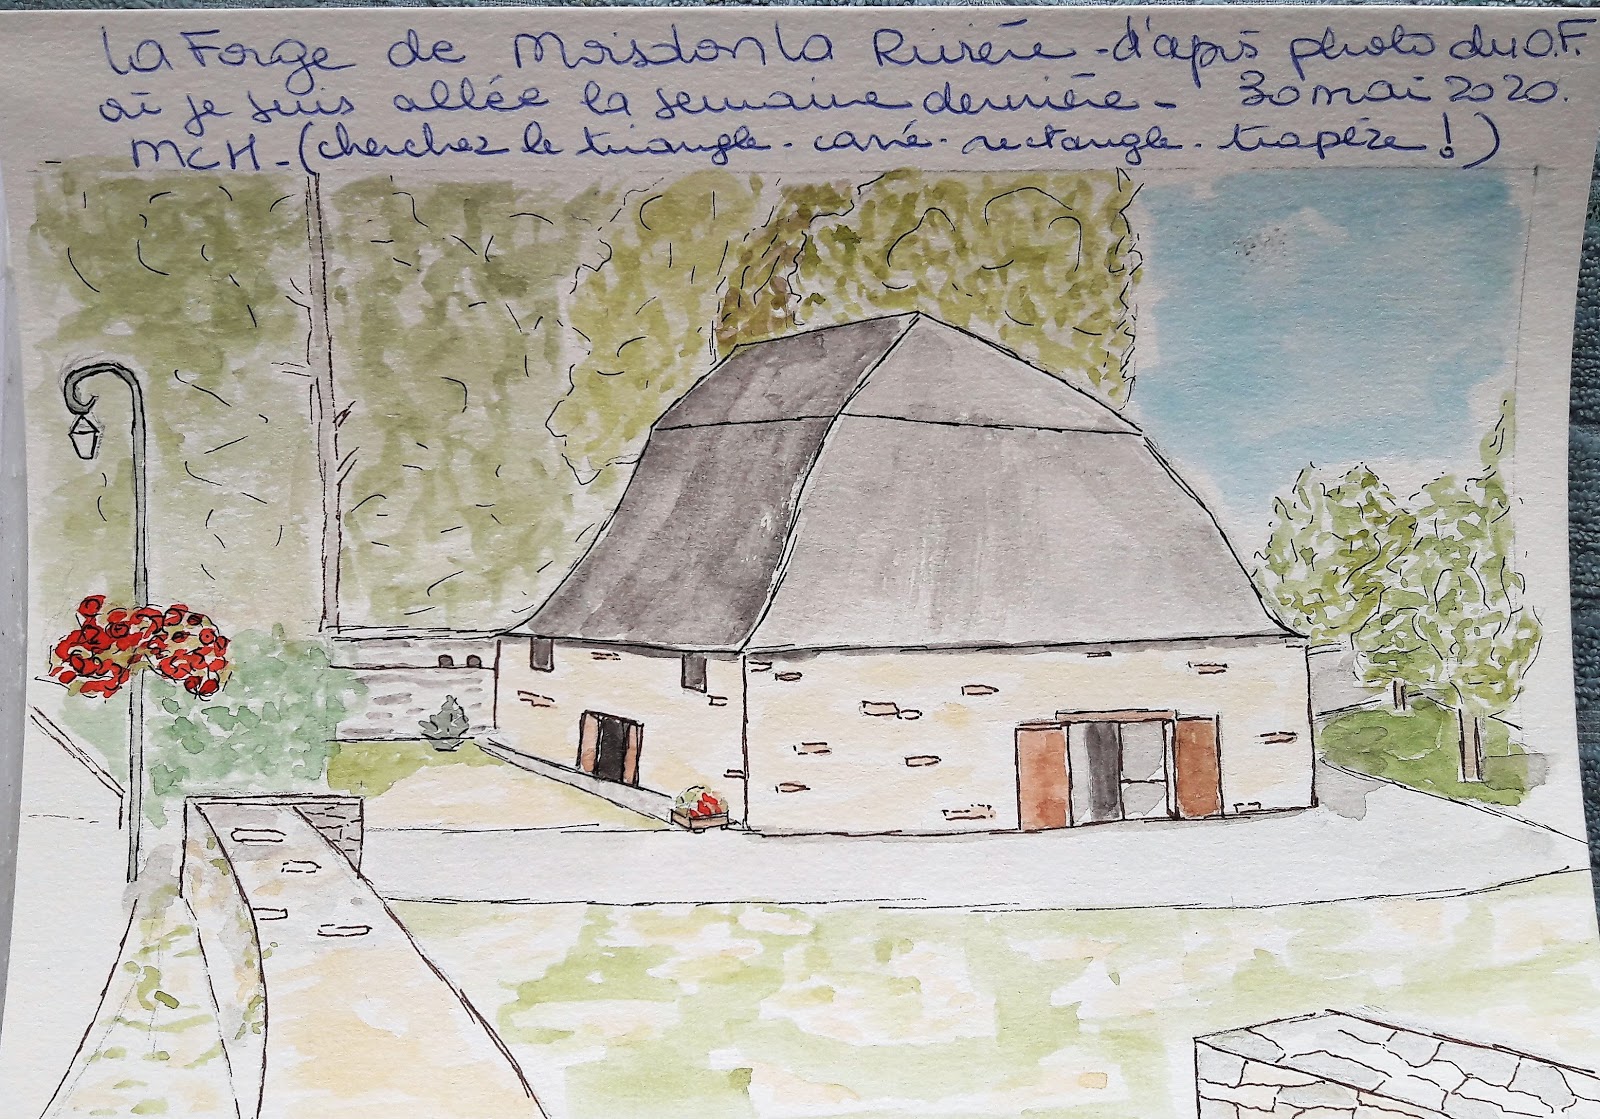 La Forge de Moisdon La Rivière - d'après photo du O.F.
où je suis allée la semaine dernière - 30 mai 2020.
MCH - (cherchez le triangle - carré - rectangle - trapèze !)